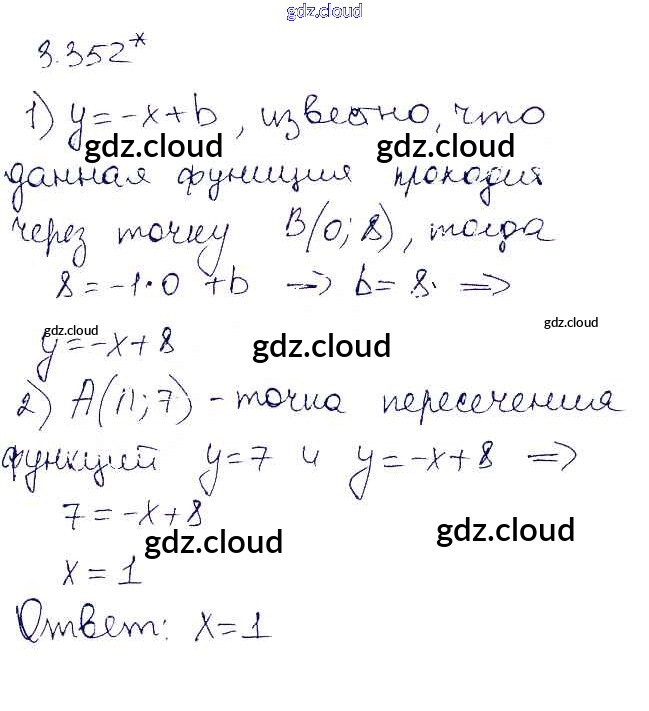 gdz.cloud
3.352*
1) y=-x+b, известно, что
gdz.cloud gdz.cloud
данная функция проходит
через точку B(0; 8), тогда
8=-1·0 +b → b=8. ⇒
gdz.cloud gdz.cloud
y=-x+8 gdz.cloud
2) A(n; 7) - точка пересечения
функций y=7 и y=-x+8 ⇒
7=-x+8
gdz.cloud gdz.cloud
x=1
Ответ: x=1